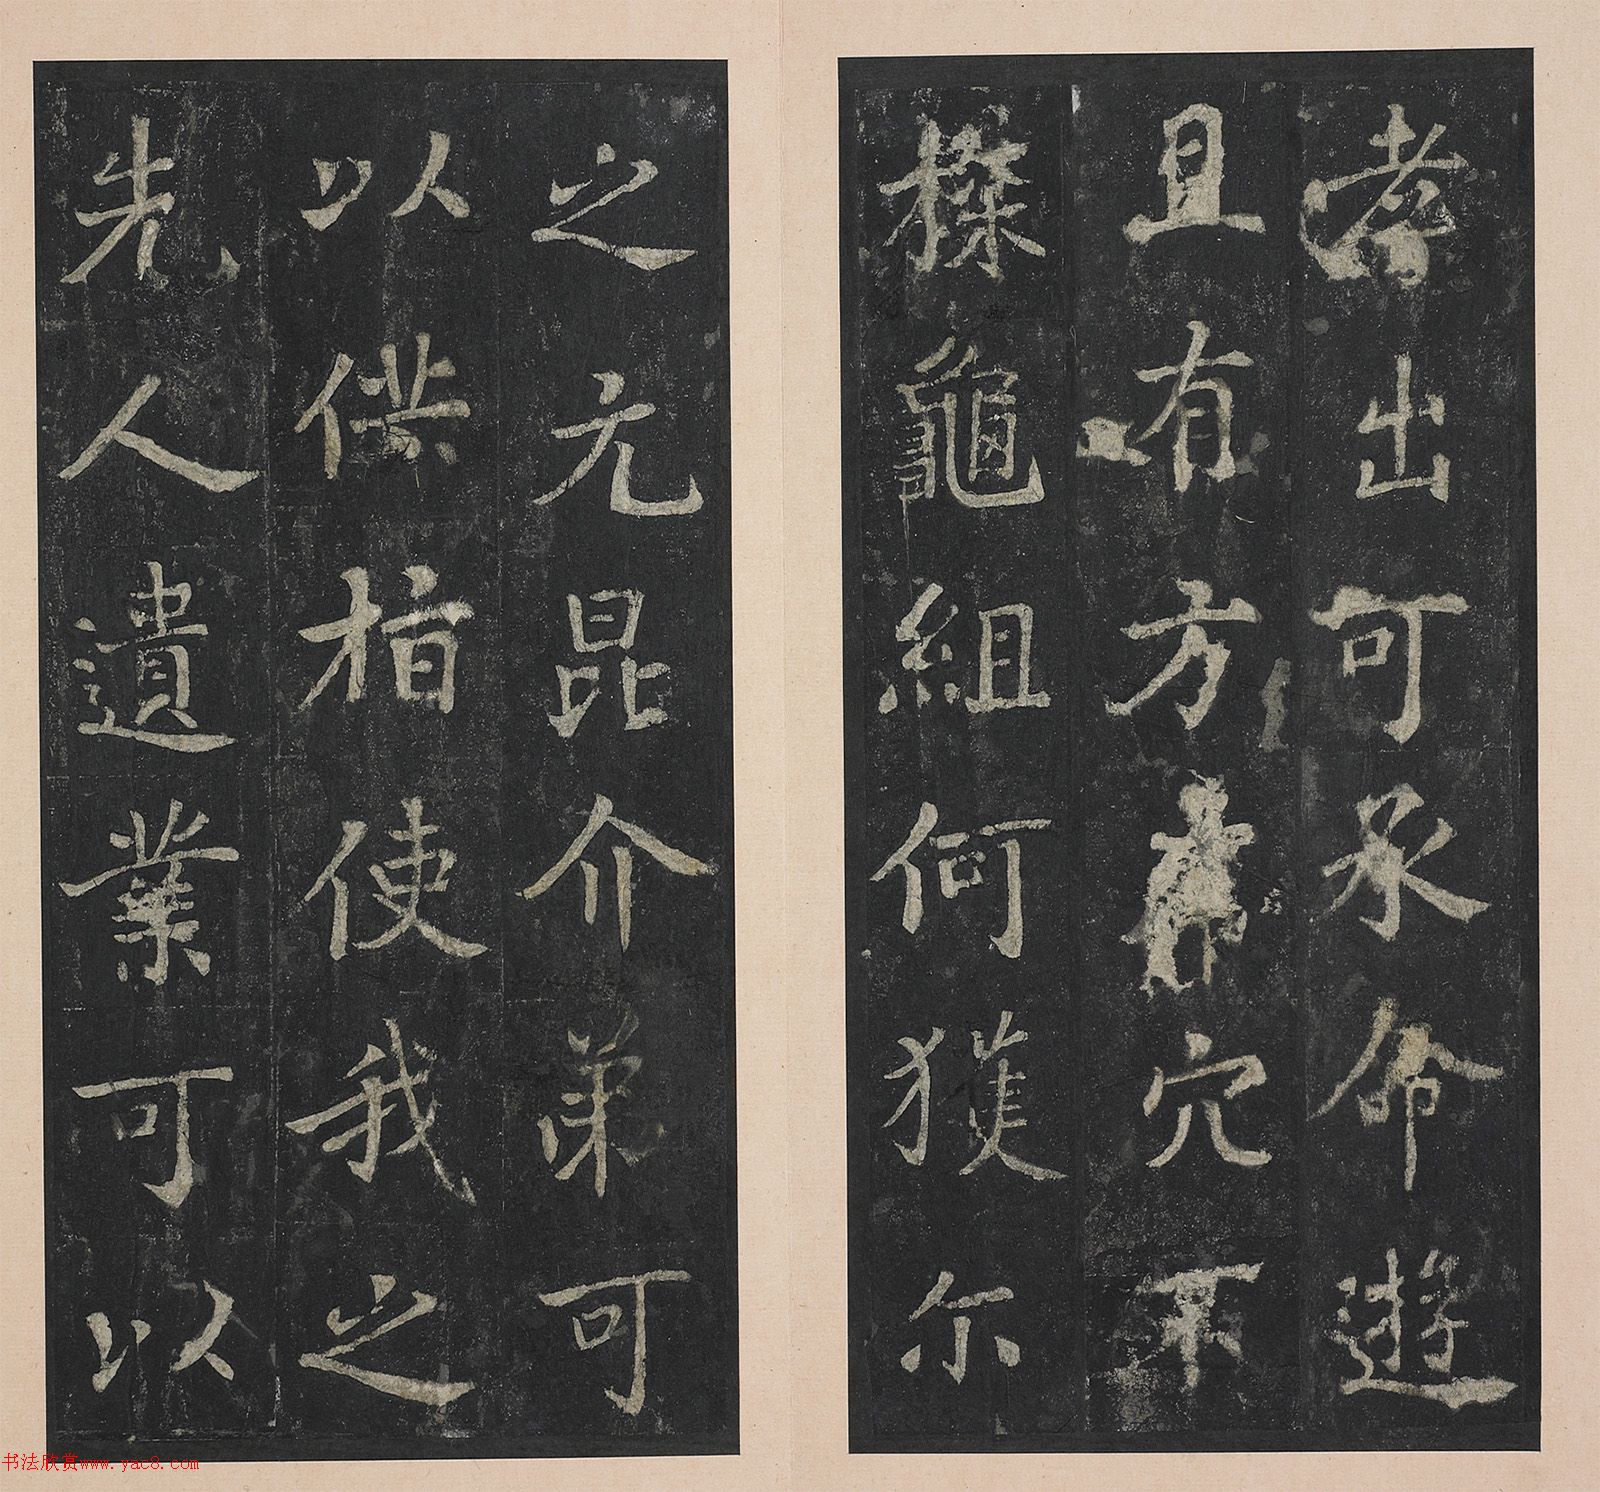 出可承命遊
且有方穴不
探龜組何獲尓
之元昆介弟可
以供指使我之
先人遺業可以
书法欣赏www.yac8.com